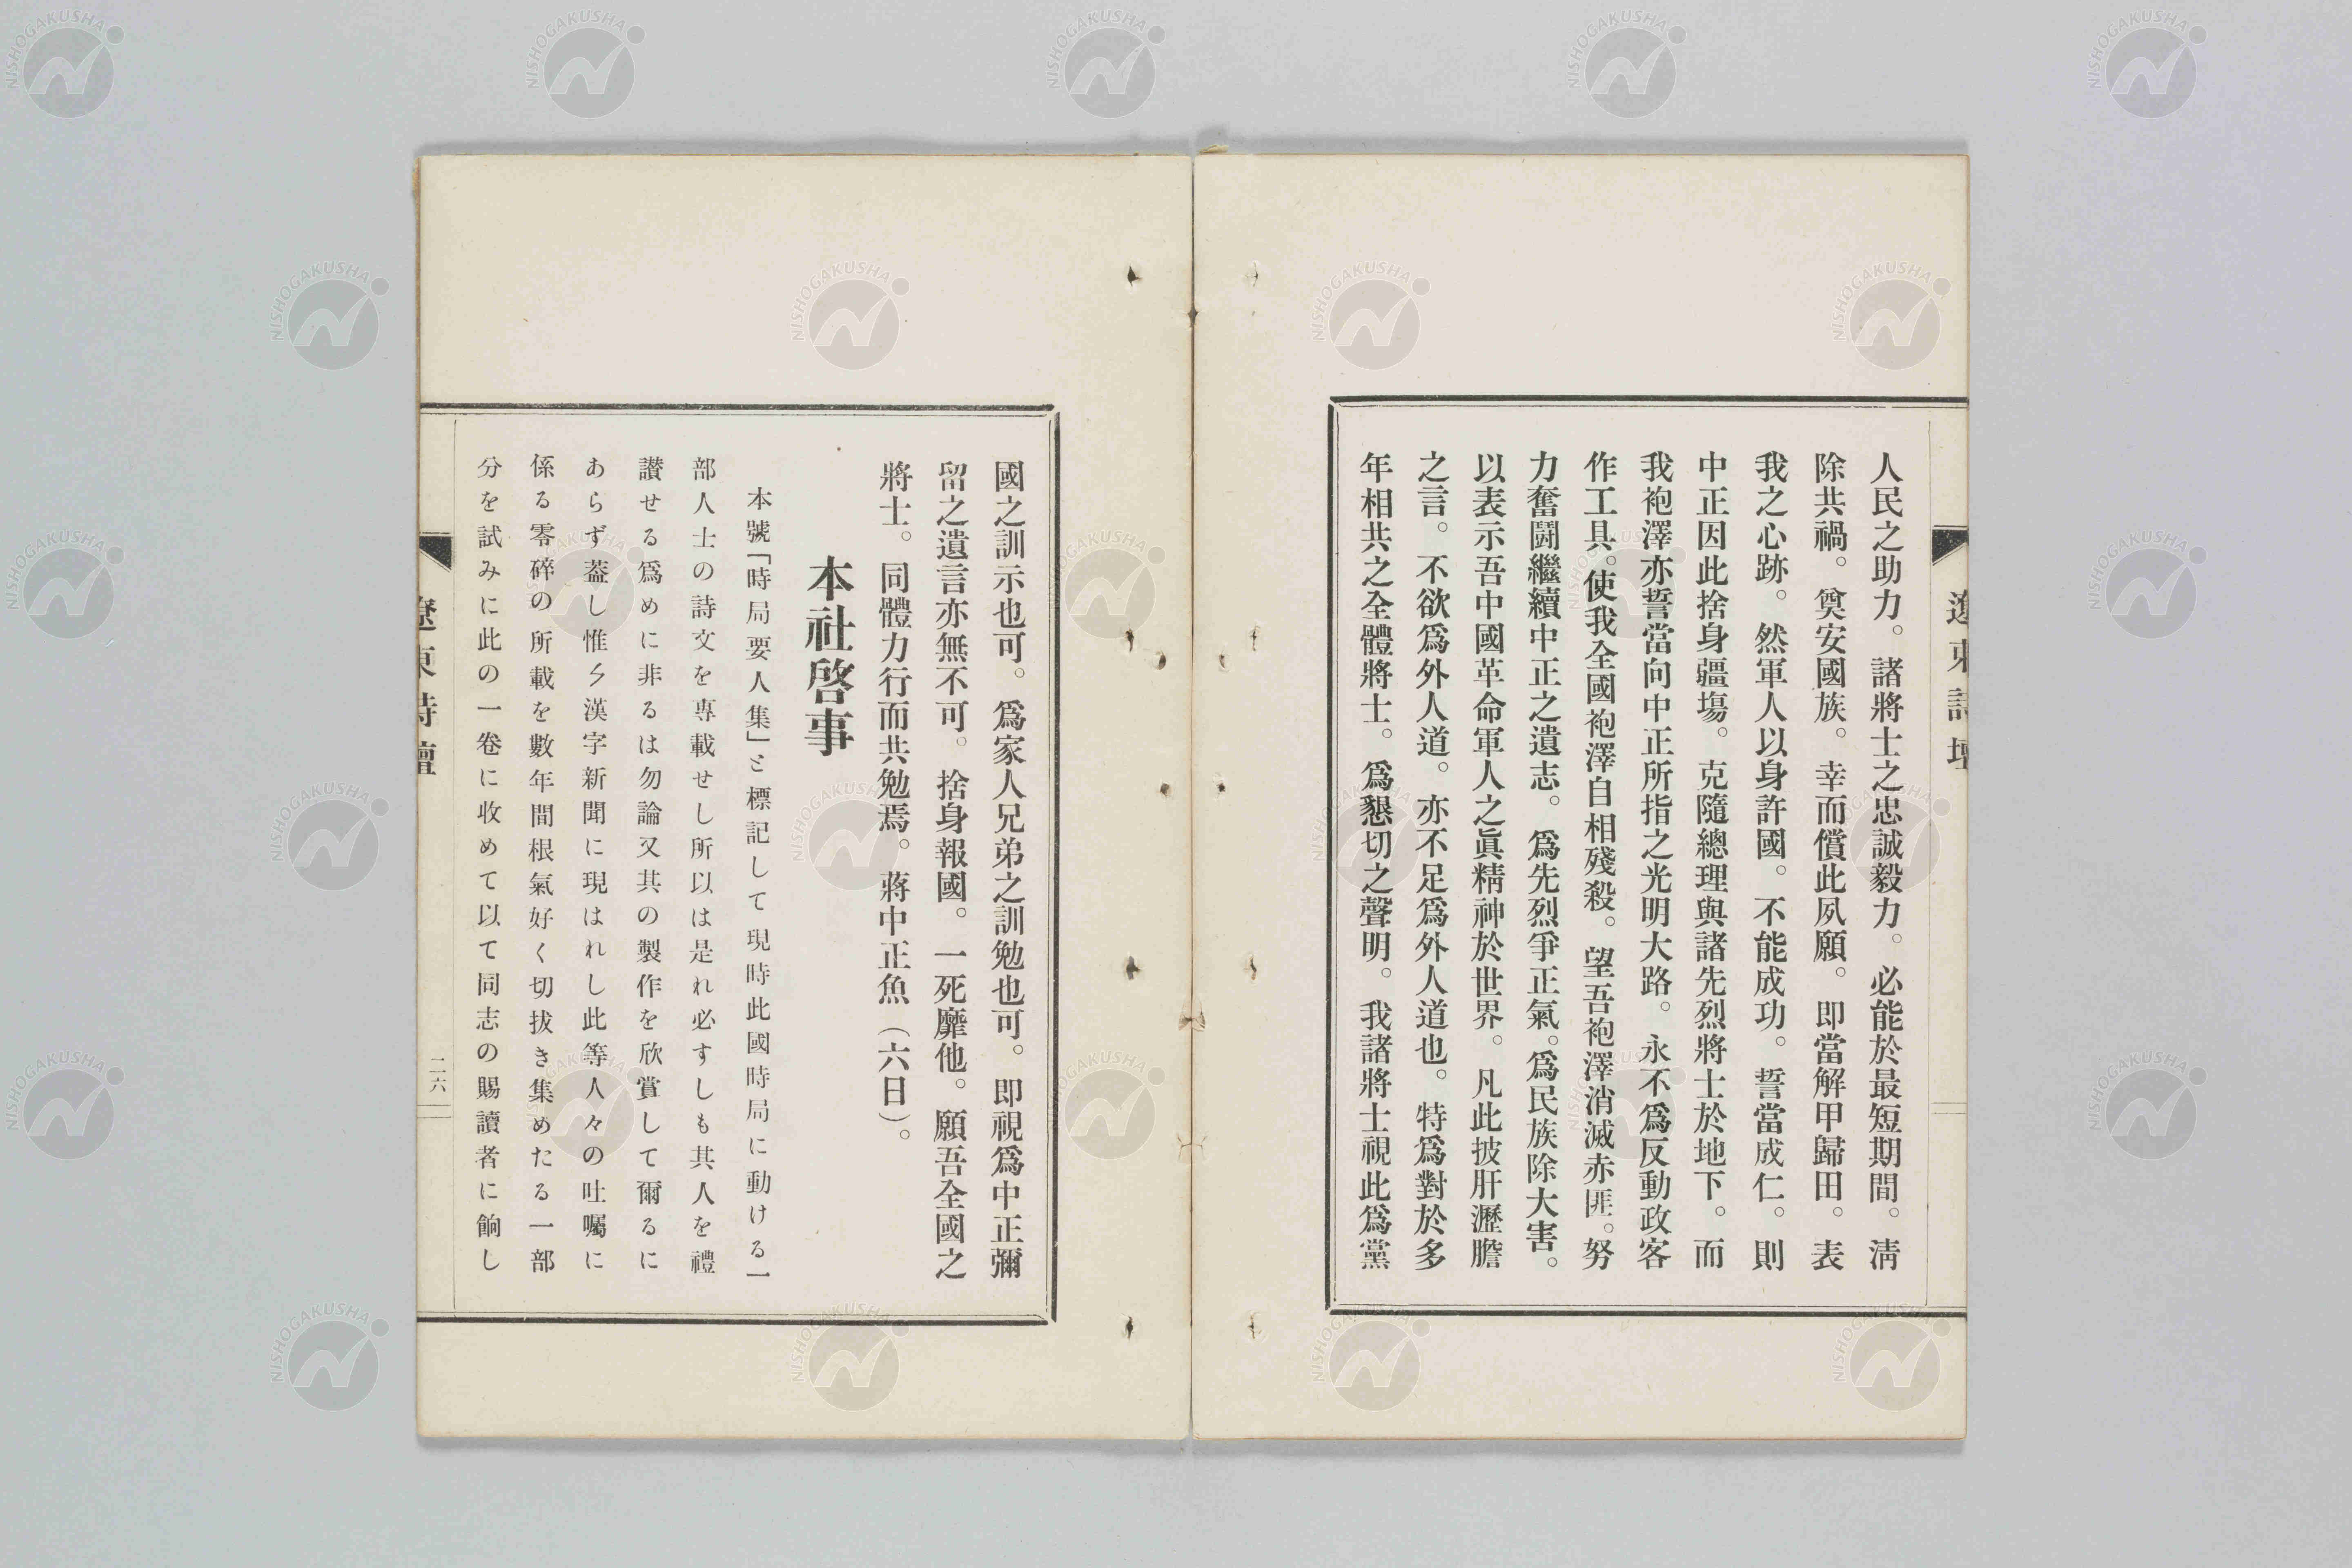 人民之助力。諸將士之忠誠毅力。必能於最短期間。淸
除共禍。奠安國族。幸而償此夙願。即當解甲歸田。表
我之心跡。然軍人以身許國。不能成功。誓當成仁。則
中正因此捨身疆場。克隨總理與諸先烈將士於地下。而
我袍澤亦誓當向中正所指之光明大路。永不爲反動政客
作工具。使我全國袍澤自相殘殺。望吾袍澤消滅赤匪。努
力奮鬪繼續中正之遺志。爲先烈爭正氣。爲民族除大害。
以表示吾中國革命軍人之眞精神於世界。凡此披肝瀝膽
之言。不欲爲外人道。亦不足爲外人道也。特爲對於多
年相共之全體將士。爲懇切之聲明。我諸將士視此爲黨
國之訓示也可。爲家人兄弟之訓勉也可。即視爲中正彌
留之遺言亦無不可。捨身報國。一死靡他。願吾全國之
將士。同體力行而共勉焉。蔣中正魚（六日）。
本社啓事
本號「時局要人集」と標記して現時此國時局に動ける一
部人士の詩文を專載せし所以は是れ必すしも其人を禮
讃せる爲めに非るは勿論又其の製作を欣賞して爾るに
あらず葢し惟々漢字新聞に現はれし此等人々の吐囑に
係る零碎の所載を數年間根氣好く切拔き集めたる一部
分を試みに此の一卷に收めて以て同志の賜讀者に餉し
遼東詩壇
二六
NISHOGAKUSHA